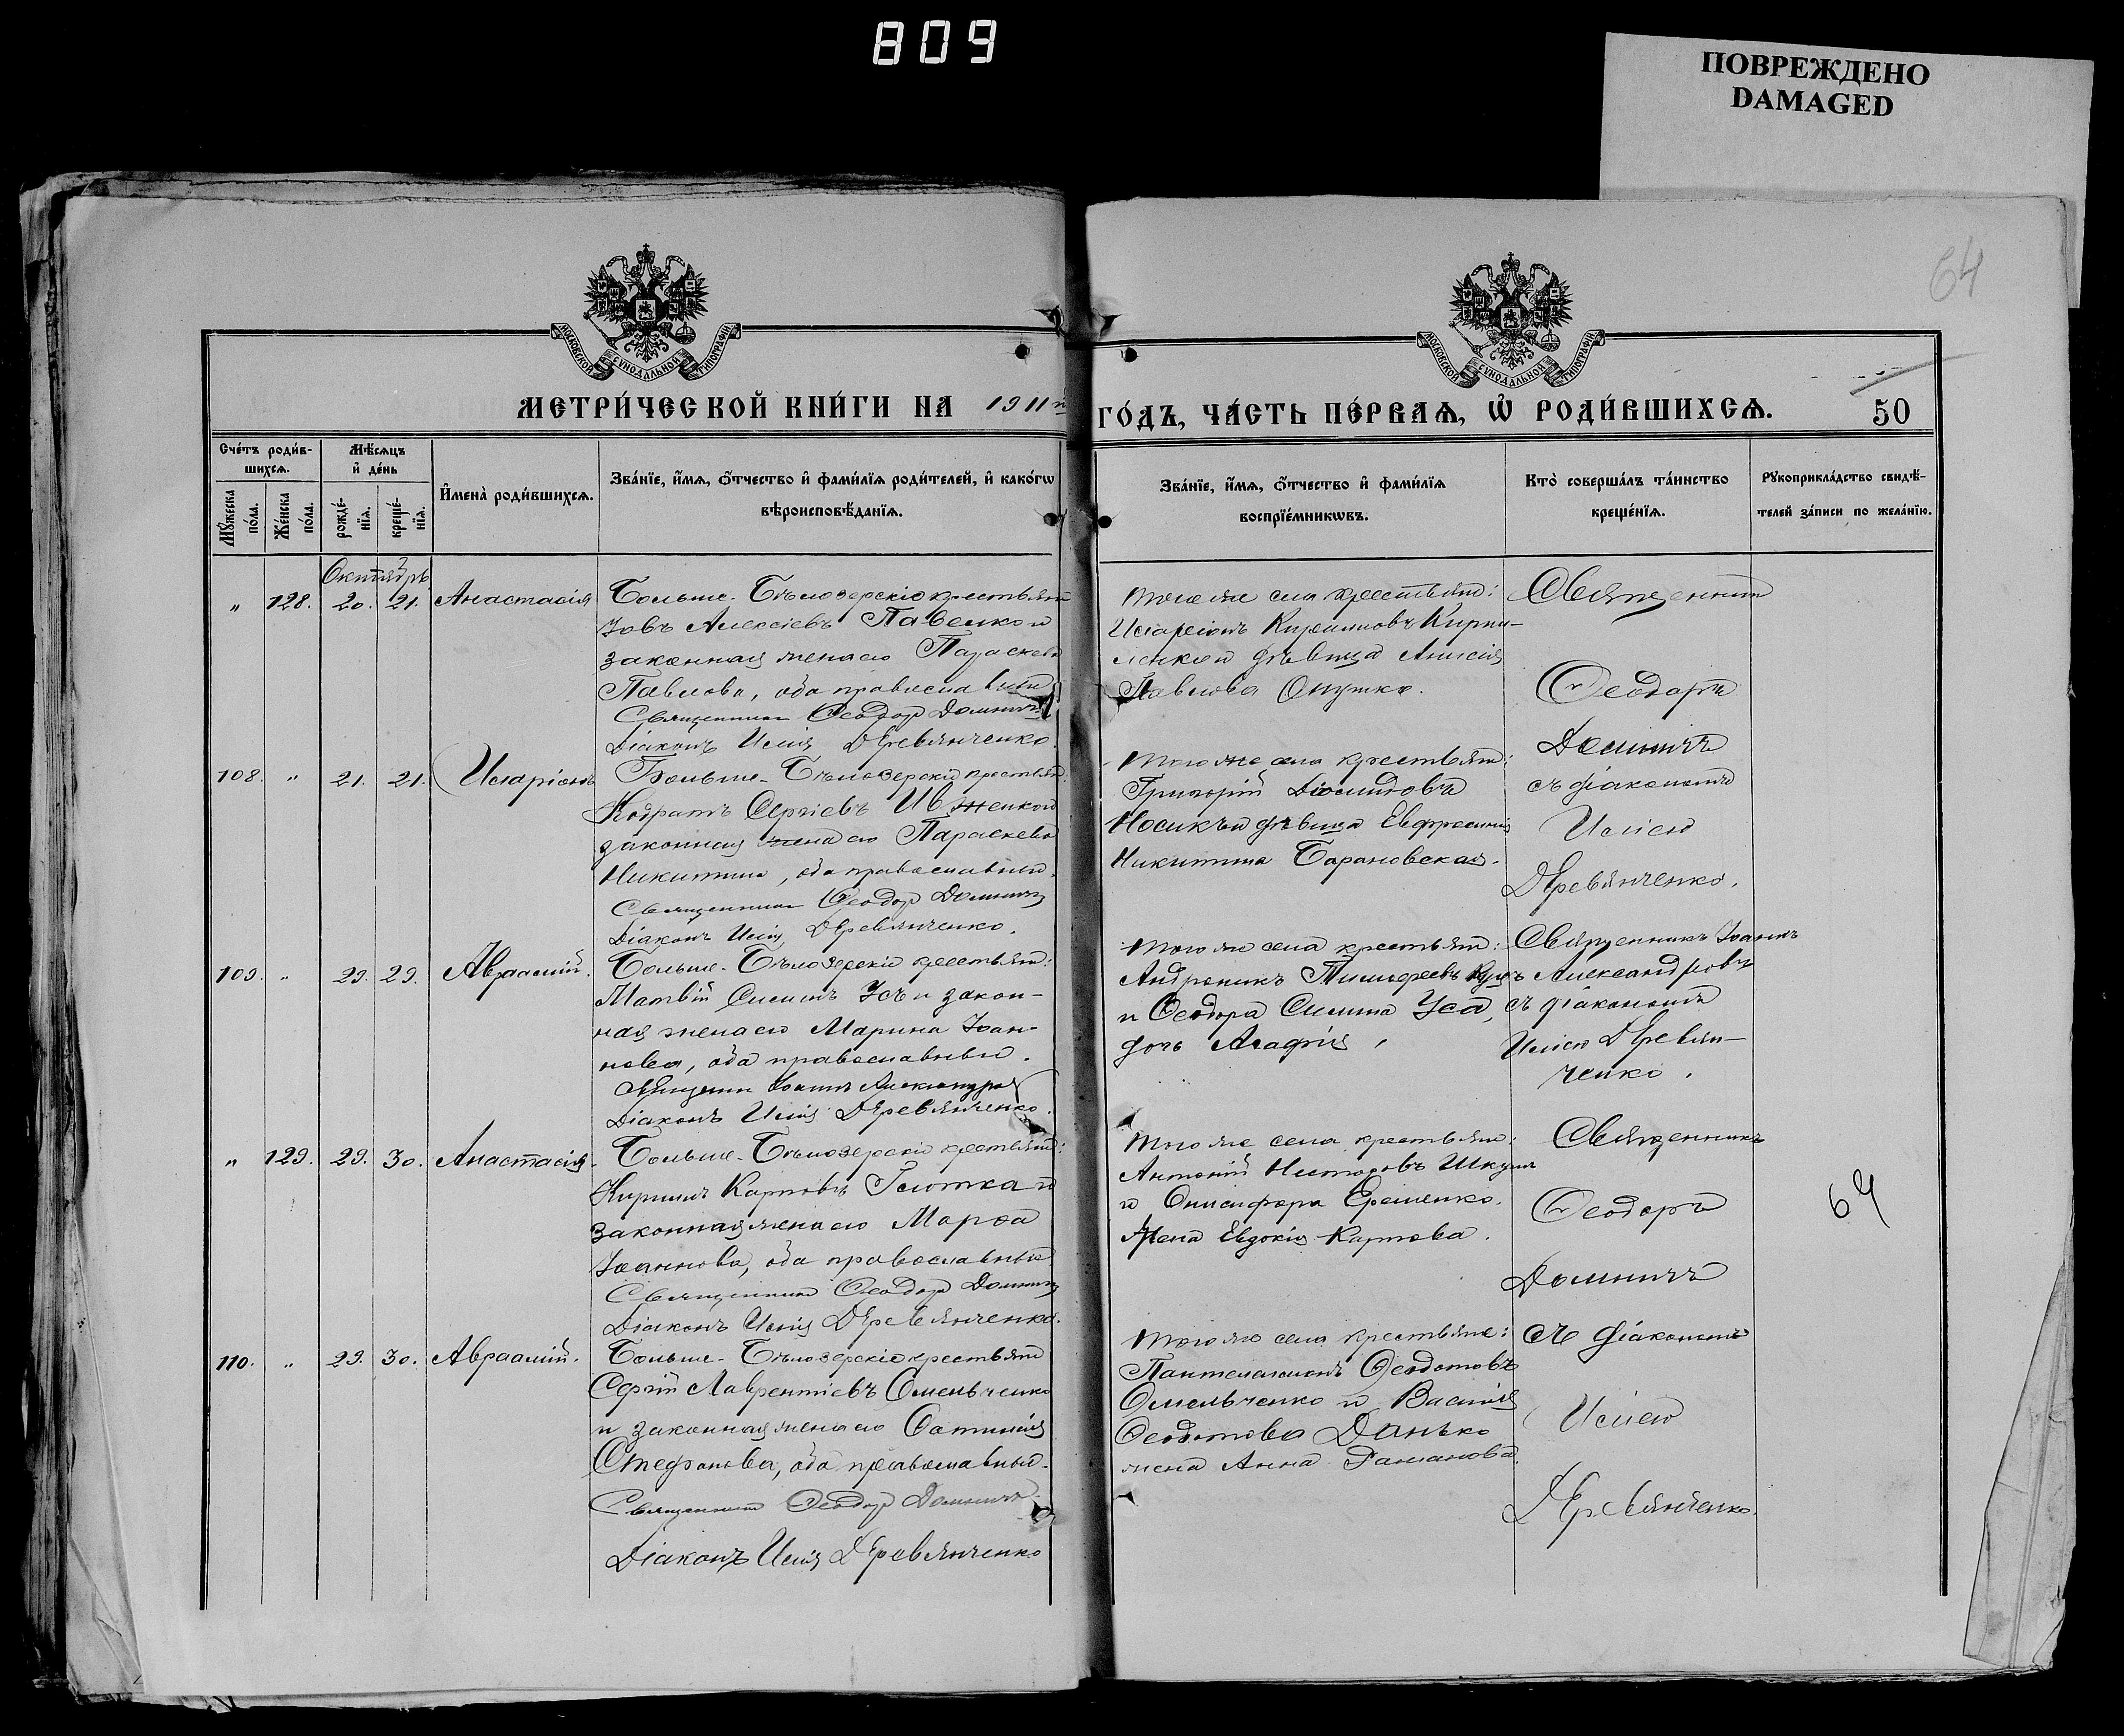 809
ПОВРЕЖДЕНО
DAMAGED
64
МОСКОВСКОЙ СѴНОДАЛЬНОЙ ТИПОГРАФІИ
МОСКОВСКОЙ СѴНОДАЛЬНОЙ ТИПОГРАФІИ
МЕТРИ́ЧЕСКОЙ КНИ́ГИ НА 1911й
ГО́ДЪ, ЧА́СТЬ ПЕ́РВАѦ, Ѡ҆ РОДИ́ВШИХСѦ.
50
Сче́тъ роди́в-
шихсѧ.
Мꙋ́жеска по́ла.
Же́нска по́ла.
Мѣ́сѧцъ
и҆ де́нь
рожде́-
нїѧ.
креще́-
нїѧ.
И҆мена̀ роди́вшихсѧ.
Зва́нїе, и҆́мѧ, ѻ҆́тчество и҆ фами́лїѧ роди́телей, и҆ како́гѡ
вѣроисповѣ́данїѧ.
Зва́нїе, и҆́мѧ, ѻ҆́тчество и҆ фами́лїѧ
воспрїе́мникѡвъ.
Кто̀ соверша́лъ та́инство
креще́нїѧ.
Рꙋкоприкла́дство свидѣ́-
телей за́писи по жела́нїю.
Октябрь
„ 128. 20. 21. Анастасія
Больше-Бѣлозерскіе крестьяне
Іовъ Алексіевъ Павелко и
законная жена его Параскева
Павлова, оба православные
Священникъ Ѳеодор Домнич
Діаконъ Илія Деревянченко.
Того же села крестьяне:
Иларіонъ Кирилловъ Кири-
ленко и дѣвица Анисія
Павлова Онушко.
Священникъ
Ѳеодоръ
Домничъ
съ діакономъ
Иліею
Деревянченко.
108. „ 21. 21. Иларіонъ
Больше-Бѣлозерскіе крестьяне:
Кодратъ Сергіевъ Ивженко и
законная жена его Параскева
Никитина, оба православные.
Священникъ Ѳеодор Домнич
Діаконъ Илія Деревянченко.
Того же села крестьяне:
Григорій Діомидовъ
Носикъ и дѣвица Евфросинія
Никитина Барановская.
109. „ 29. 29. Авраамій.
Больше-Бѣлозерскіе крестьяне:
Матвій Силинъ Усъ и закон-
ная жена его Марина Іоан-
нова, оба православные.
Священникъ Іоаннъ Александров
Діаконъ Илія Деревянченко.
Того же села крестьяне:
Андроникъ Тимофеевъ Куцъ
и Ѳеодора Силина Уса,
дочь Агафія.
Священникъ Іоаннъ
Александровъ
съ діакономъ
Иліею Деревян-
ченко.
„ 129. 29. 30. Анастасія.
Больше-Бѣлозерскіе крестьяне:
Кириллъ Карповъ Глотка и
законная жена его Марѳа
Іоаннова, оба православные
Священникъ Ѳеодор Домнич
Діаконъ Илія Деревянченко.
Того же села крестьяне:
Антоній Несторовъ Шкуля
и Онисифора Ерёменко.
жена Евдокія Карпова.
Священникъ
Ѳеодоръ
Домничъ
съ діакономъ
Иліею
Деревянченко.
64
110. „ 29. 30. Авраамій.
Больше-Бѣлозерскіе крестьяне
Сергій Лаврентіевъ Омельченко
и законная жена его Фотинія
Стефанова, оба православные.
Священникъ Ѳеодор Домнич
Діаконъ Илія Деревянченко
Того же села крестьяне:
Пантелеимонъ Ѳеодотовъ
Омельченко и Василія
Ѳеодотова Данько
жена Анна